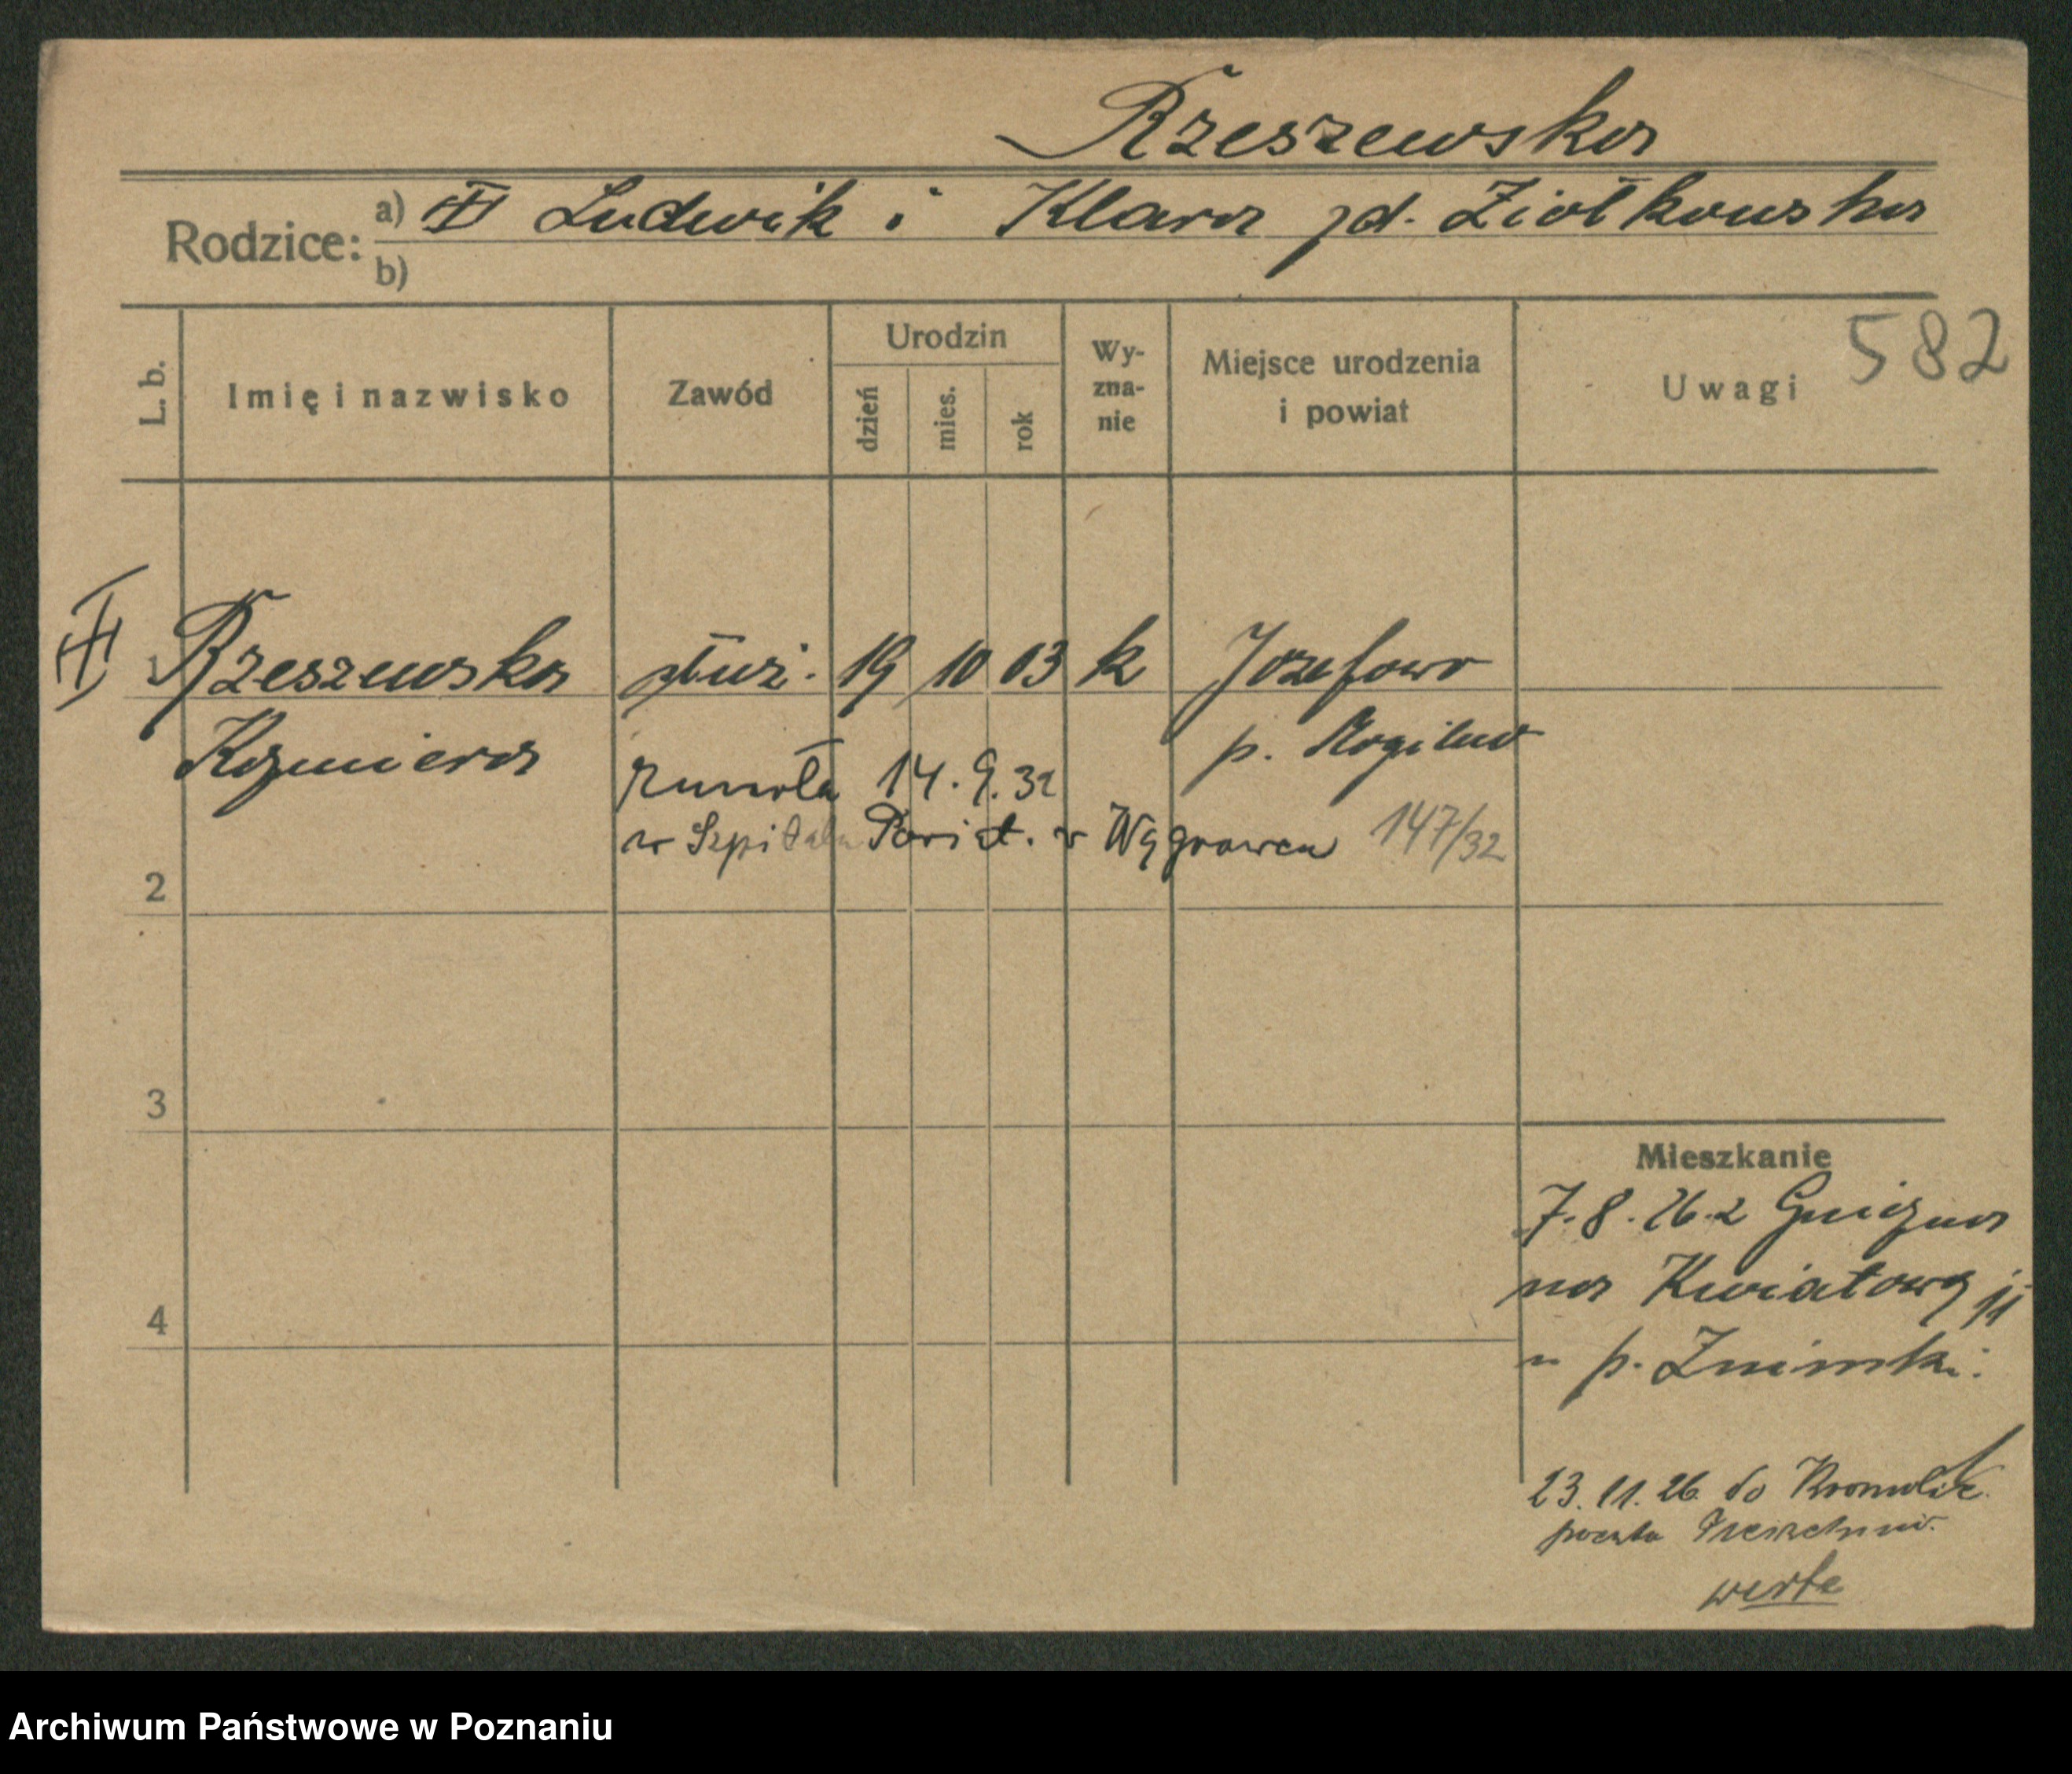 Rzeszewska
Rodzice: a) Ludwik i Klara zd. Ziołkowska
b)
L. b. Imię i nazwisko Zawód Urodzin dzień mies. rok Wyznanie Miejsce urodzenia i powiat Uwagi 582
1 Rzeszewska służ. 19 10 03 k Józefowo
Kazmiera p. Mogilno
zmarła 14.9.32
w Szpitalu Powiat. w Wągrowcu 147/32
2
3
4
Mieszkanie
7.8.26 z Gniezna
na Kwiatową 11
u p. Znimski.
23.11.26 do
poczta
verte
Archiwum Państwowe w Poznaniu